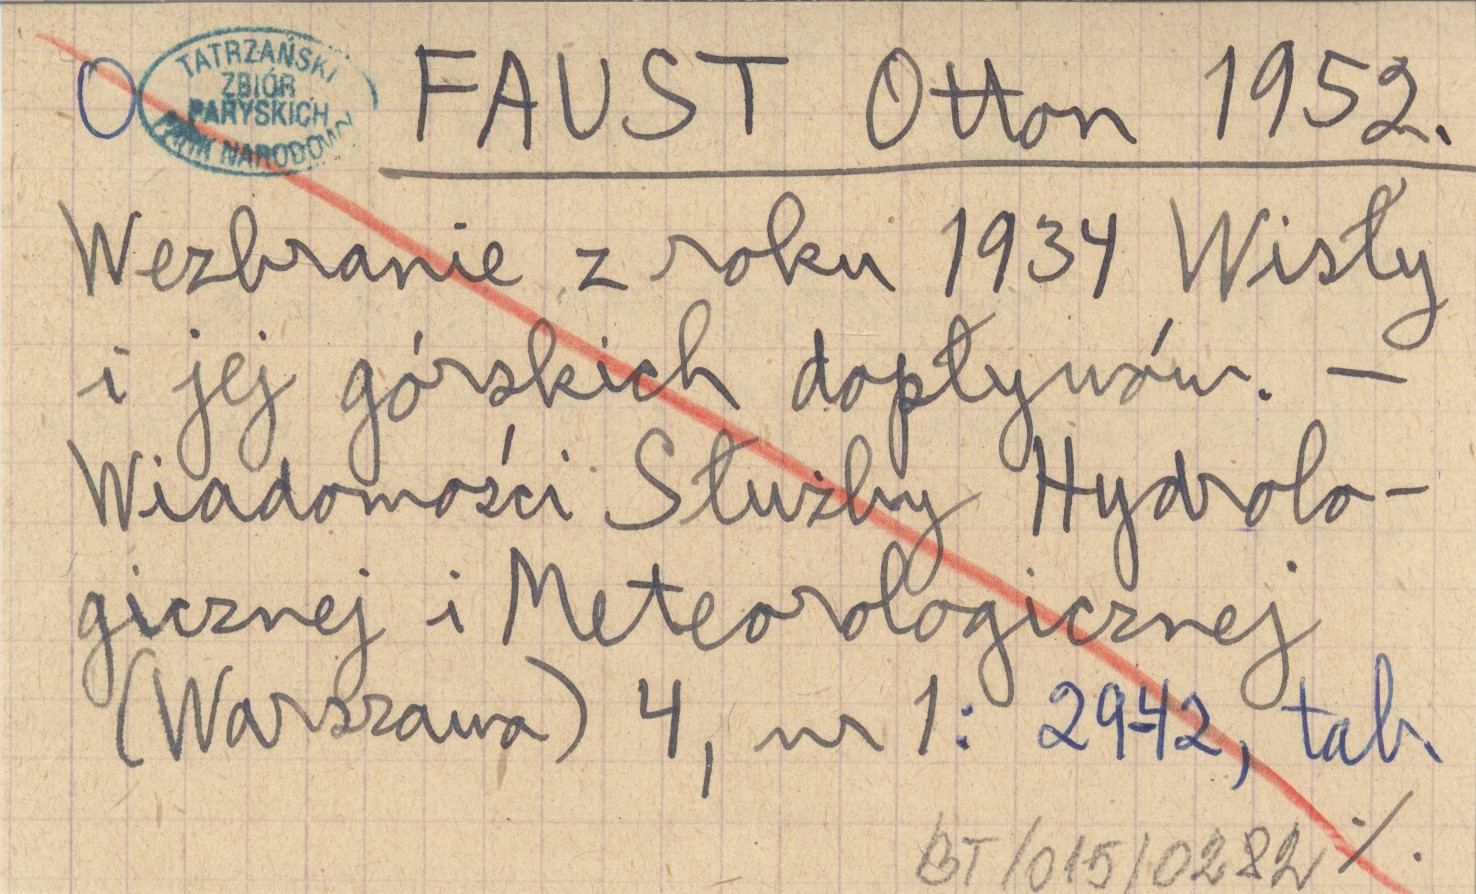 O
TATRZAŃSKI
ZBIÓR
PARYSKICH
PARK NARODOWY
FAUST Otton 1952.
Wezbranie z roku 1934 Wisły
i jej górskich dopływów. —
Wiadomości Służby Hydrolo-
gicznej i Meteorologicznej
(Warszawa) 4, nr 1: 29-42, tab.
BT/015/0282 /.